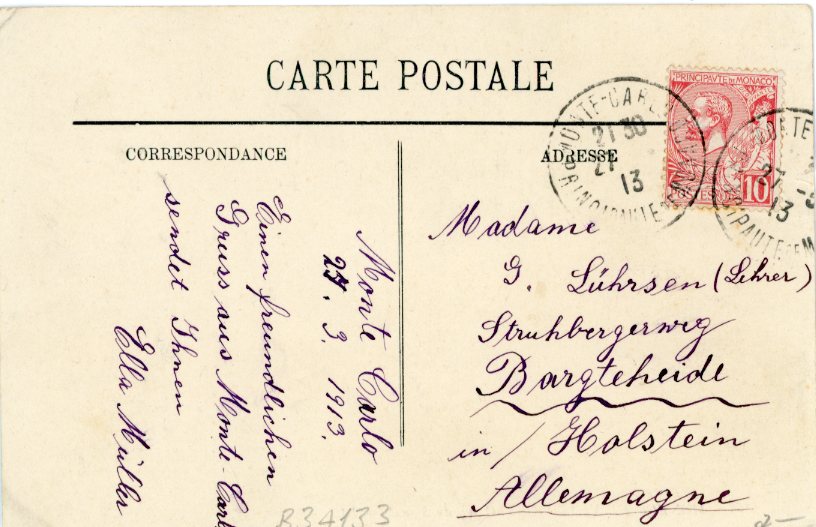 CARTE POSTALE
CORRESPONDANCE
ADRESSE
PRINCIPAUTE DE MONACO
10
MONTE-CARLO
21 30
27
13
PRINCIPAUTE DE
27 -3
13
CIPAUTE DE M
Monte Carlo
27. 3. 1913.
Einen freundlichen
Gruss aus Monte-Carl
sendet Ihnen
Ella Müller
Madame
G. Lührsen (Lehrer)
Struhbergerweg
Bargteheide
in / Holstein
Allemagne
B34133